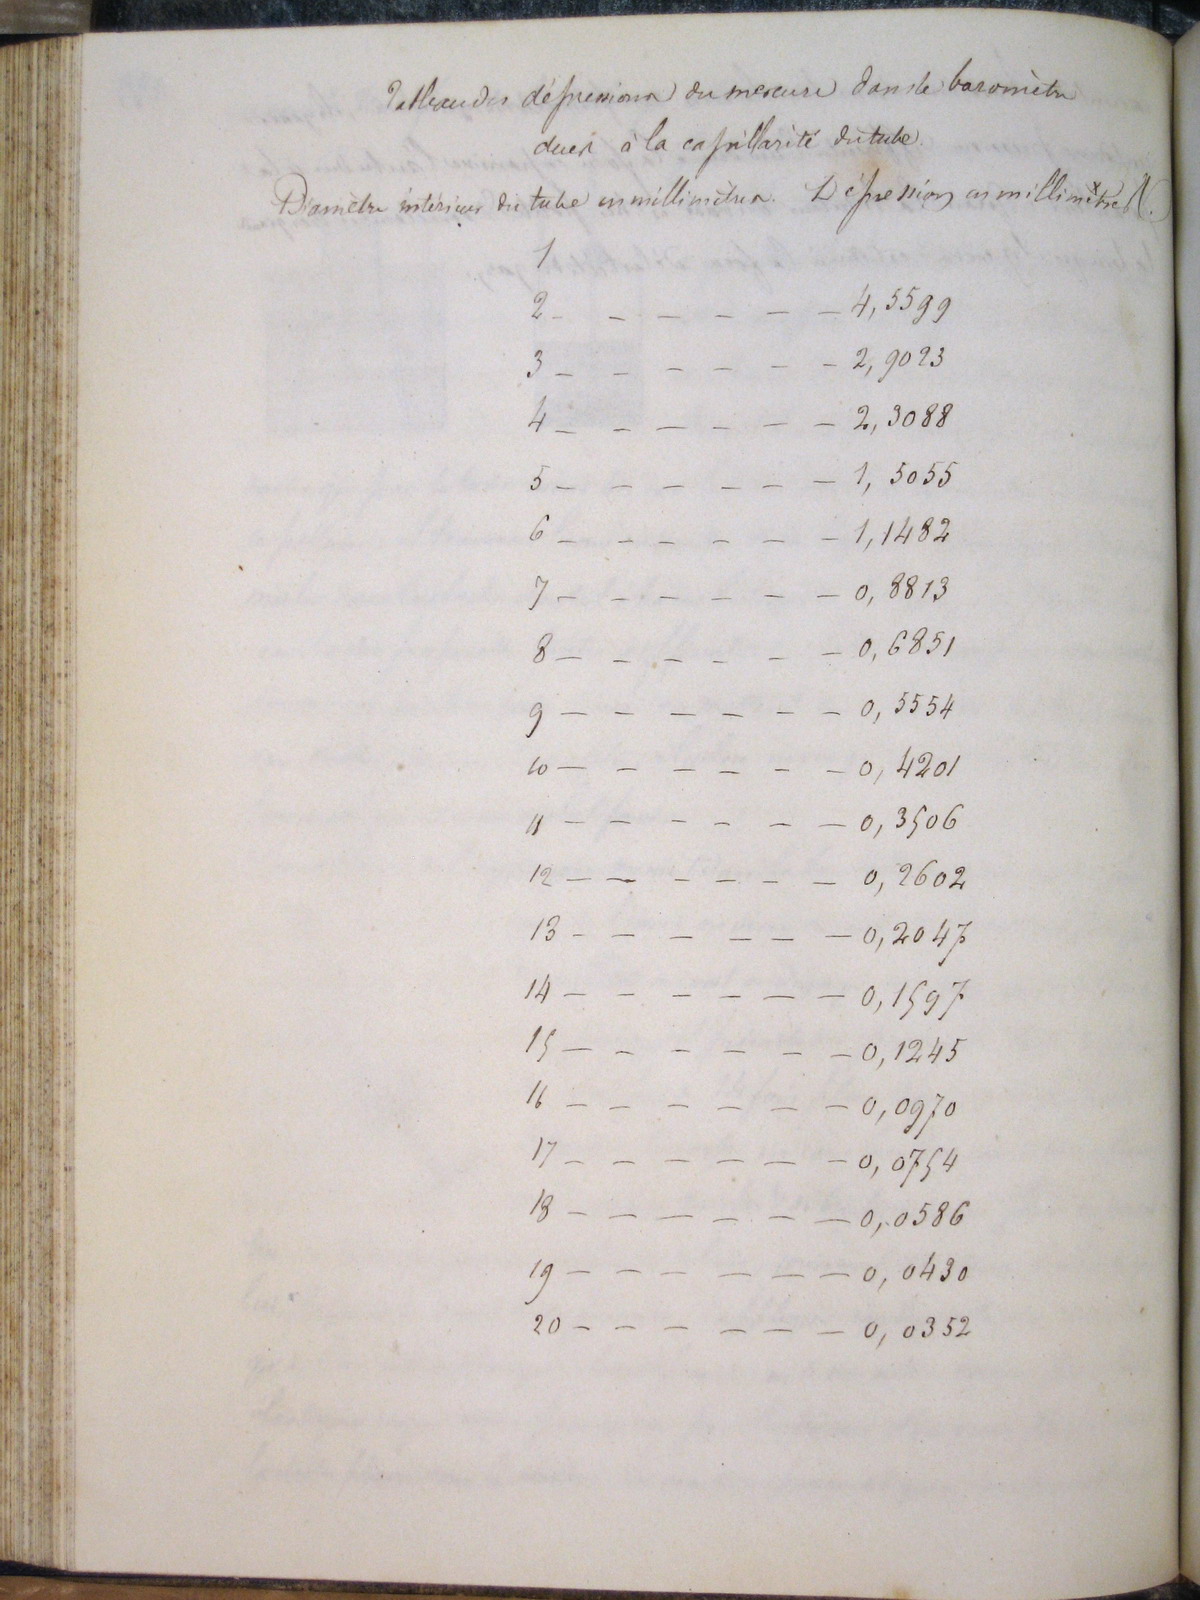 Tableau des dépressions du mercure dans le baromètre
dues à la capillarité du tube.
Diamètre intérieur du tube en millimètres. Dépression en millimètres
1
2 - - - - - - 4,5599
3 - - - - - - 2,9023
4 - - - - - - 2,3088
5 - - - - - - 1,5055
6 - - - - - - 1,1482
7 - - - - - - 0,8813
8 - - - - - - 0,6851
9 - - - - - - 0,5554
10 - - - - - - 0,4201
11 - - - - - - 0,3506
12 - - - - - - 0,2602
13 - - - - - - 0,2047
14 - - - - - - 0,1597
15 - - - - - - 0,1245
16 - - - - - - 0,0970
17 - - - - - - 0,0754
18 - - - - - - 0,0586
19 - - - - - - 0,0430
20 - - - - - - 0,0352